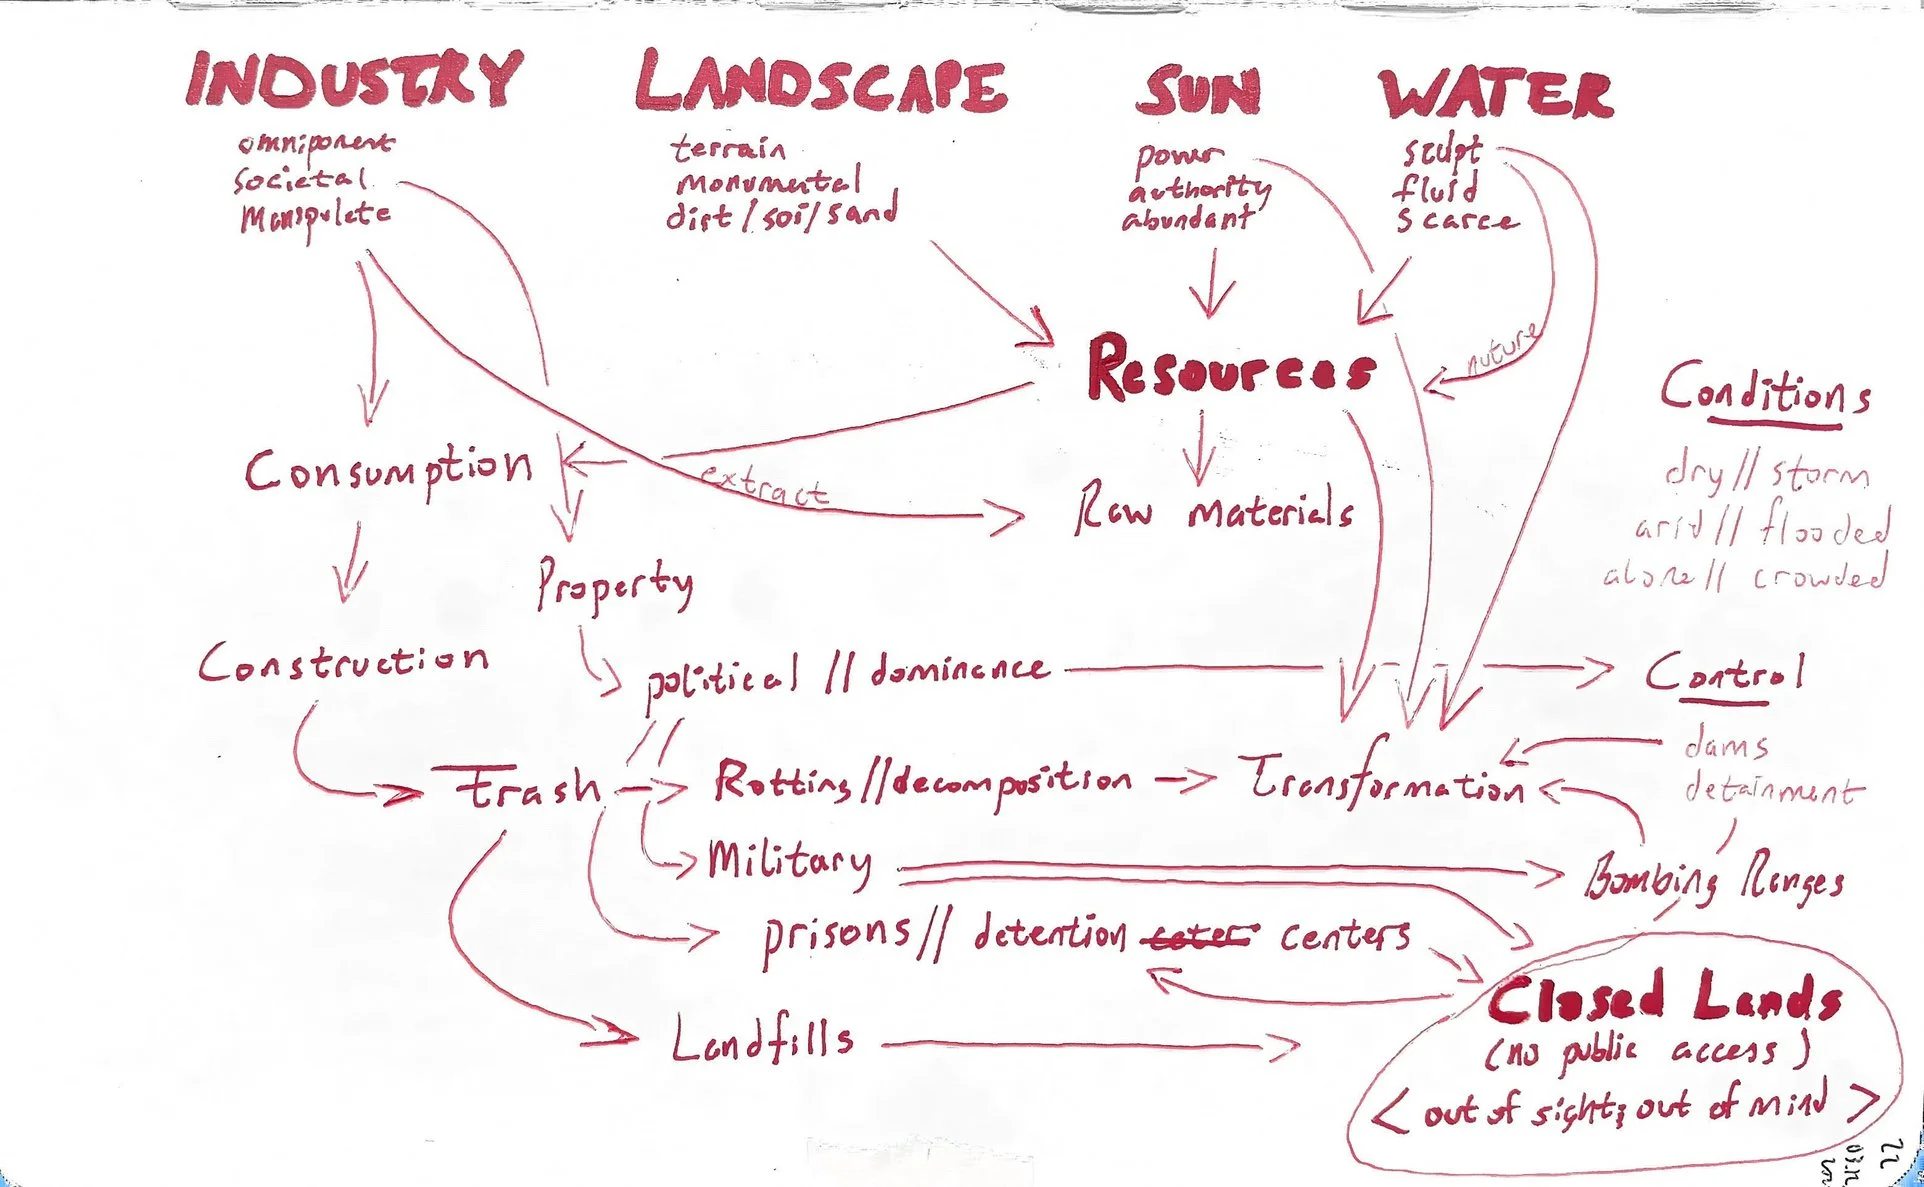 INDUSTRY
omniponent
societal
Manipulate
LANDSCAPE
terrain
monumental
dirt/soi/sand
SUN
power
authority
abundant
WATER
sculpt
fluid
scarce
Resources
nuture
Conditions
dry // storm
arid // flooded
alone // crowded
Consumption
extract
Raw materials
Property
Construction
political // dominance
Control
dams
detainment
Trash
Rotting//decomposition
Transformation
Military
Bombing Ranges
prisons// detention centers
Closed Lands
(no public access)
< out of sight; out of mind >
Landfills
22